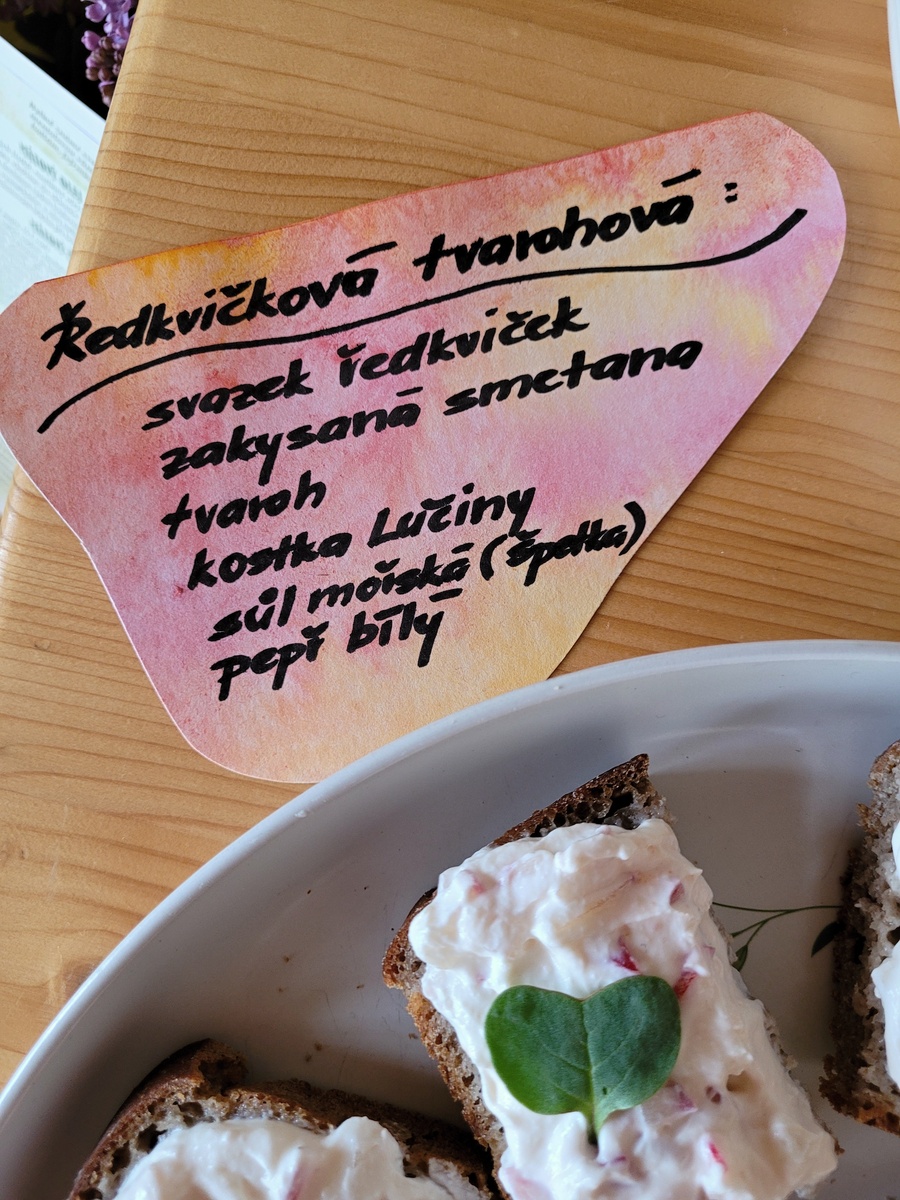 Ředkvičková tvarohová :
svazek ředkviček
zakysaná smetana
tvaroh
kostka Lučiny
sůl mořská (špetka)
pepř bílý